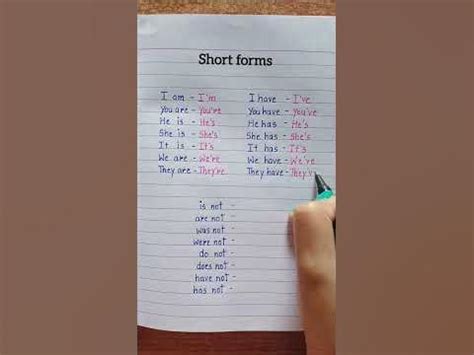 Short forms
I am - I'm
You are - You've
He is - He's
She is - She's
It is - It's
We are - We're
They are - They're
I have - I've
You have - You've
He has - He's
She has - She's
It has - It's
We have - We've
They have - They'
is not -
are not -
was not -
were not -
do not -
does not -
have not -
has not -